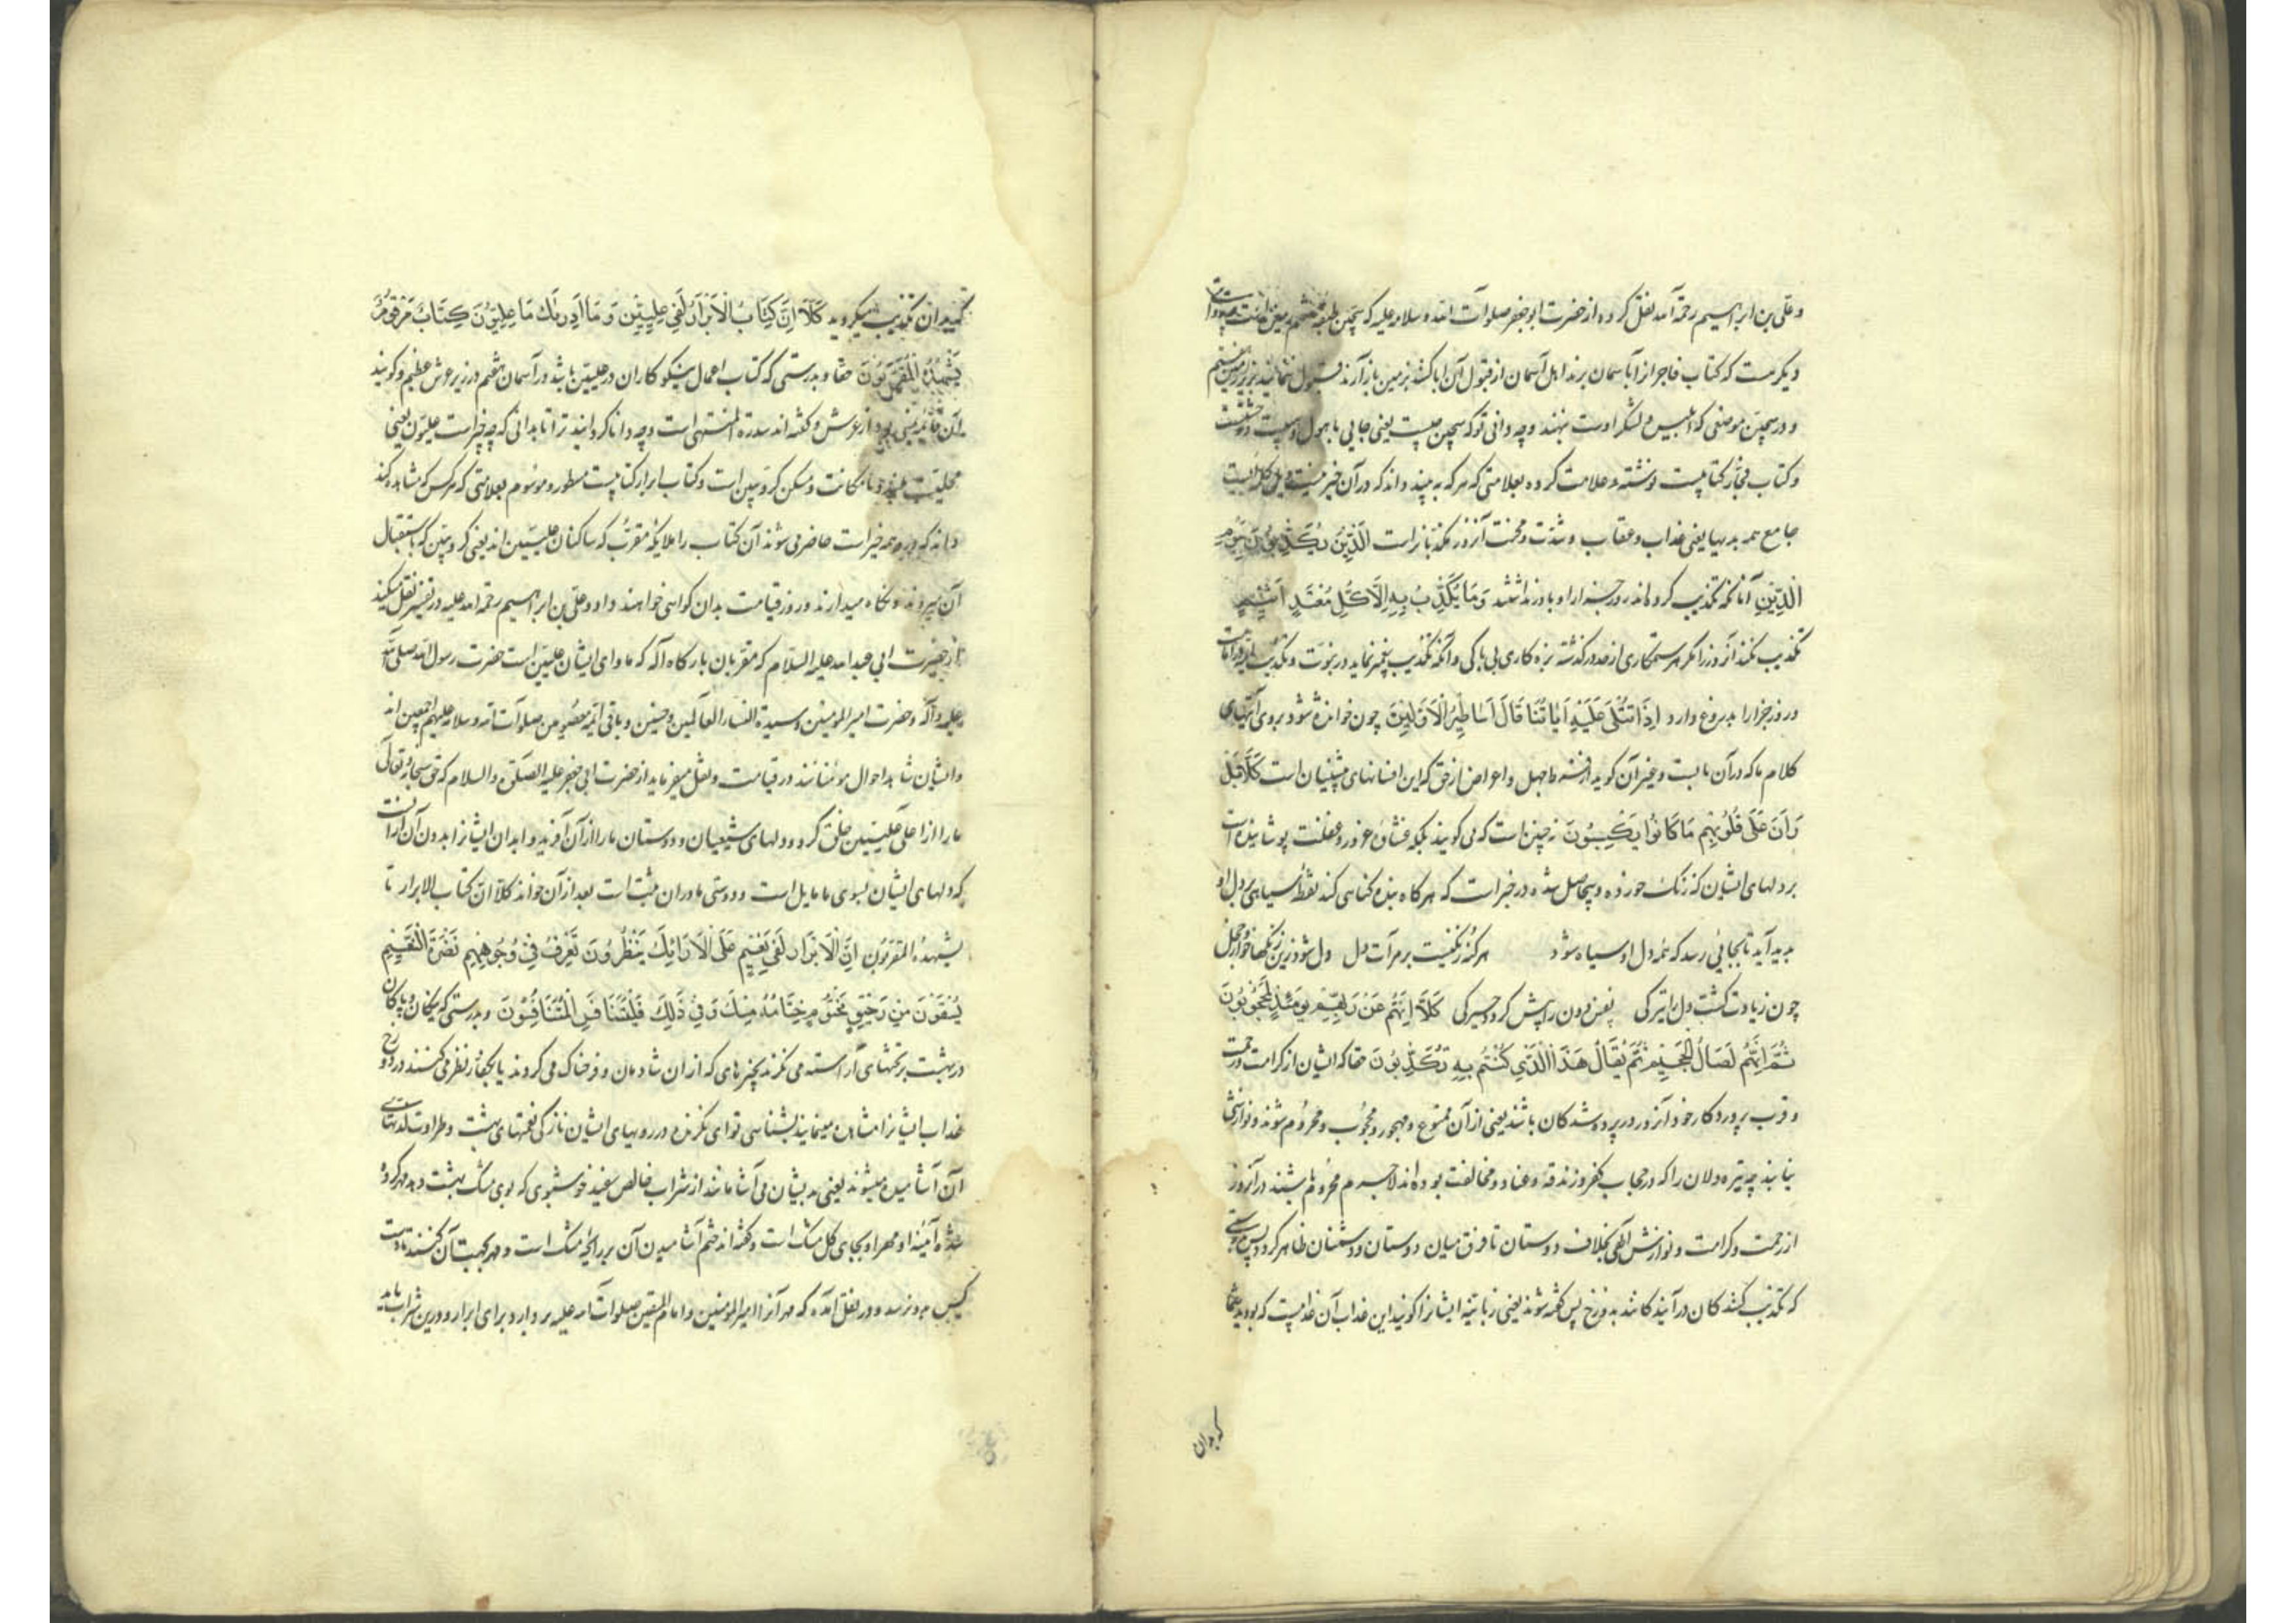 و علی بن ابراهیم رحمه الله نقل کرده از حضرت ابو جعفر صلوات الله و سلامه علیه که سجین طبقه هفتم زمین است
دیگر مست که کتاب فاجر از آبا سمان برند اهل آسمان از قبول آن ابا کنند بزمین باز آرند قبول ننمایند بزیر زمین هفتم
و در سجین موضعی که ابلیس و لشکر اوست نهند وچه دانی توکه سجین چیست یعنی جایی باهول و هیبت
و کتاب فجار کتابیست نوشته و علامت کرده بعلامتی که هر که به بیند داند که در آن خیر نیست ویل کلمه ایست
جامع همه بدیها یعنی عذاب و عقاب و شدت و محنت آنروز مکذبانراست الَّذِینَ یُکَذِّبُونَ بِیَوْمِ
الدِّینِ آنانکه تکذیب کرده‌اند روز جزا را و باور نداشتند وَمَا یُکَذِّبُ بِهِ اِلَّا کُلُّ مُعْتَدٍ اَثِیمٍ
تکذیب نکند آنروز را مگر هر ستمکاری از حد درگذشته بزه کاری بی باکی و آنکه تکذیب پیغمبر نماید در نبوت و تکذیب
و روز جزا را بدروغ دارد اِذَا تُتْلَی عَلَیْهِ اٰیَاتُنَا قَالَ اَسَاطِیرُ الْاَوَّلِینَ چون خوانده شود بروی آیتهای
کلام ما که در آن و غیر آن گوید از فرط جهل و اعراض از حق که این افسانهای پیشینیان است کَلَّا بَلْ
رَانَ عَلَی قُلُوبِهِمْ مَا کَانُوا یَکْسِبُونَ نه چنین است که می کویند بلکه غشاوه غرور و غفلت پوشانیده است
بر دلهای ایشان که زنک خورده و حاصل شده در خبر است که هر کاه بنده کناهی کند نقطه سیاهی بر دل او
پدید آید تا بجایی رسد که همه دل او سیاه شود هر کنه زنگیست بر مرآت دل دل شود زین زنکها خوار و خجل
چون زیادت کشت دل را تیرکی نفس دون را بیش کردد خیرکی کَلَّا اِنَّهُمْ عَنْ رَبِّهِمْ یَوْمَئِذٍ لَمَحْجُوبُونَ
ثُمَّ اِنَّهُمْ لَصَالُ الْجَحِیمِ ثُمَّ یُقَالُ هَذَا الَّذِی کُنْتُمْ بِهِ تُکَذِّبُونَ حقا که ایشان از کرامت و رحمت
و قرب پروردکار خود آنروز در پرده شدکان باشند یعنی از آن ممنوع و مهجور و محجوب و محروم شوند و نوازش
نیابند چه تیره دلان را که در حجاب کفر و زندقه و عناد و مخالفت بوده‌اند لاجرم محروم باشند در آنروز
از رحمت و کرامت و نوازش الهی بخلاف دوستان تا فرق میان دوستان و دشمنان ظاهر کردد پس بدرستی
که تکذیب کنندکان در آیندکانند بدوزخ پس کفته شوند یعنی زبانیه ایشانرا کویند این عذاب آن عذابیست که بودید شما
که بدان
که بدان تکذیب میکردید کَلَّا اِنَّ کِتَابَ الْاَبْرَارِ لَفِی عِلِّیِّینَ وَمَا اَدْرٰیکَ مَا عِلِّیُّونَ کِتَابٌ مَرْقُومٌ
یَشْهَدُهُ الْمُقَرَّبُونَ حقا و بدرستی که کتاب اعمال نیکو کاران در علیین باشد در آسمان هفتم در زیر عرش عظیم و کویند
آن قائمه یمنی بود از عرش و کفته اند سدرة المنتهی است وچه دانا کردانید ترا تا بدانی که چه چیز است علیون یعنی
محلیست بلند و با مکانت و مسکن کروبین است و کتاب ابرار کتابیست مسطور و موسوم بعلامتی که هر کس که مشاهده کند
داند که درو همه خیر است حاضر می شوند آن کتاب را ملایکه مقرب که ساکنان علیین اند یعنی کروبین که باستقبال
آن میروند و نکاه میدارند و روز قیامت بدان کواهی خواهند داد و علی بن ابراهیم رحمه الله علیه در تفسیر نقل میکند
از حضرت ابی عبدالله علیه السلام که مقربان بارکاه اله که ماوای ایشان علیین است حضرت رسول الله صلی الله
علیه و آله و حضرت امیر المومنین و سیدة النساء العالمین و حسنین و باقی ائمه معصومین صلوات الله و سلامه علیهم اجمعین اند
و ایشان شاهد احوال مومنانند در قیامت و نقل میفرماید از حضرت ابی جعفر علیه الصلوة والسلام که حق سبحانه و تعالی
ما را از اعلی علیین خلق کرد و دلهای شیعیان و دوستان ما را از آن آفرید و ابدان ایشانرا بدون آن از آنست
که دلهای ایشان بسوی ما مایل است و دوستی ما در ان مثبت است بعد از آن خواند کلا ان کتاب الابرار تا
یشهده المقربون اِنَّ الْاَبْرَارَ لَفِی نَعِیمٍ عَلَی الْاَرَائِکِ یَنْظُرُونَ تَعْرِفُ فِی وُجُوهِهِمْ نَضْرَةَ النَّعِیمِ
یُسْقَوْنَ مِنْ رَحِیقٍ مَخْتُومٍ خِتَامُهُ مِسْکٌ وَفِی ذَلِکَ فَلْیَتَنَافَسِ الْمُتَنَافِسُونَ و بدرستی که نیکان و پاکان
در بهشت بر تختهای آراسته می نکرند بچیزهای که از ان شادمان و فرحناک می کردند یا بکفار نظر می کنند در دوزخ
عذاب ایشانرا مشاهده مینمایند بشناسی تو ای نکرنده در رویهای ایشان تازکی نعمتهای بهشت و طراوت لذتهای
آن آشامیده میشوند یعنی بدیشان می آشامانند از شراب خالص سفید خوشبوی که بوی مشک بهشت دهد مهر کرده
شده آنیه او و مهر او بجای کل مشک است و کفته اند ختم آشامیدن آن بر رایحه مشک است و مهر بجهت آن کنند تا دست
کسی بدو نرسد و در نقل آمده که مهر آنرا امیر المومنین و امام المتقین صلوات الله علیه بر دارد برای ابرار و درین شراب باید